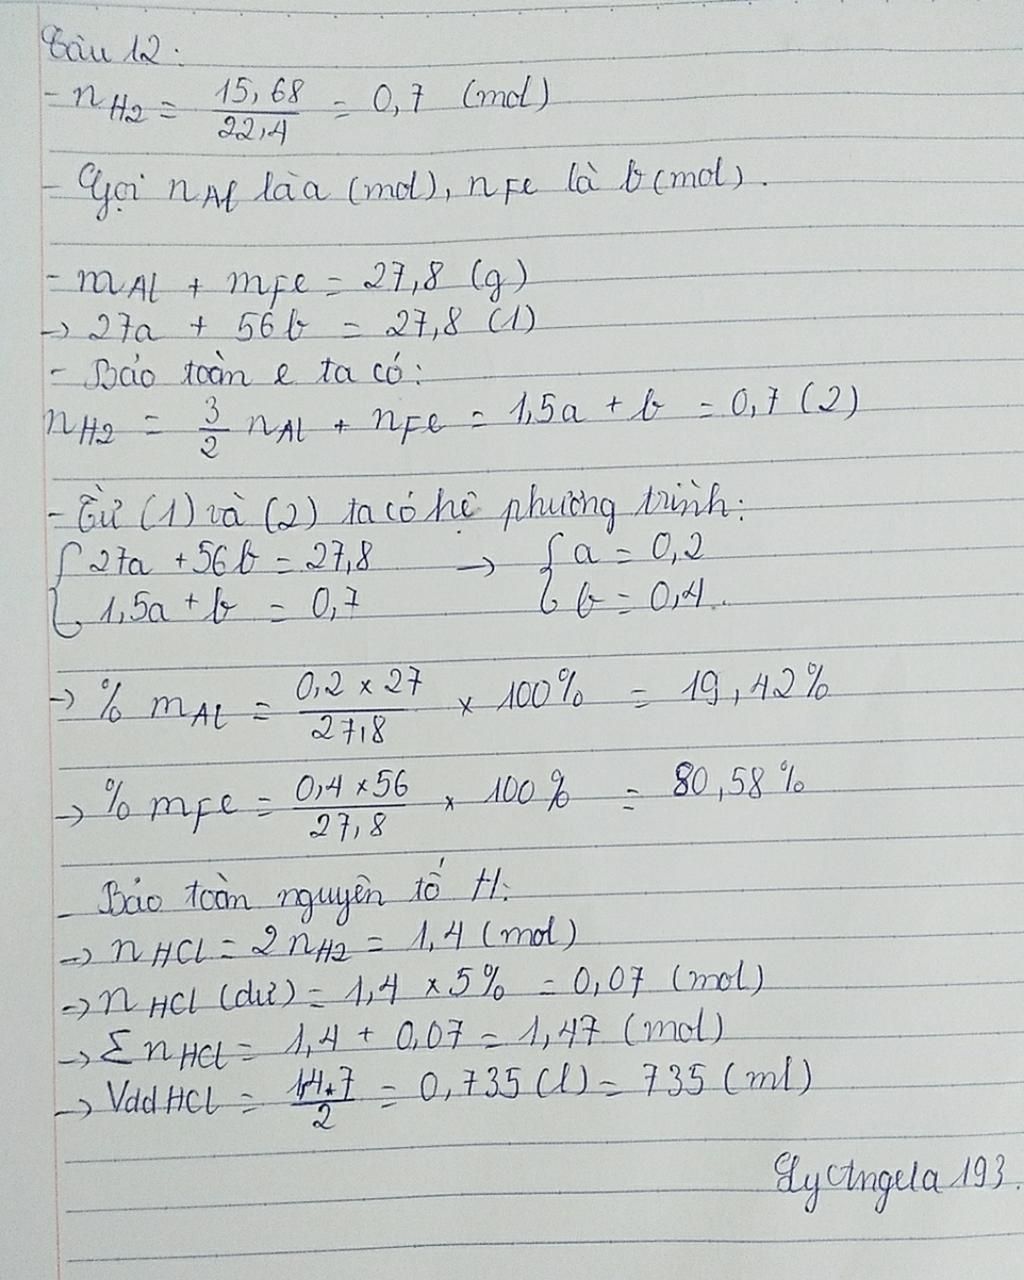 Câu 12:
- nH2 = 15,68 / 22,4 = 0,7 (mol)
- Gọi nAl là a (mol), nFe là b (mol).
- mAl + mFe = 27,8 (g)
→ 27a + 56b = 27,8 (1)
- Bảo toàn e ta có:
nH2 = 3/2 nAl + nFe = 1,5a + b = 0,7 (2)
- Từ (1) và (2) ta có hệ phương trình:
{ 27a + 56b = 27,8 → { a = 0,2
{ 1,5a + b = 0,7 { b = 0,4.
→ % mAl = 0,2 × 27 / 27,8 × 100% = 19,42%
→ % mFe = 0,4 × 56 / 27,8 × 100% = 80,58%
- Bảo toàn nguyên tố H:
→ nHCl = 2nH2 = 1,4 (mol)
→ nHCl (dư) = 1,4 × 5% = 0,07 (mol)
→ Σ nHCl = 1,4 + 0,07 = 1,47 (mol)
→ Vdd HCl = 1,47 / 2 = 0,735 (l) = 735 (ml)
LyAngela 193.